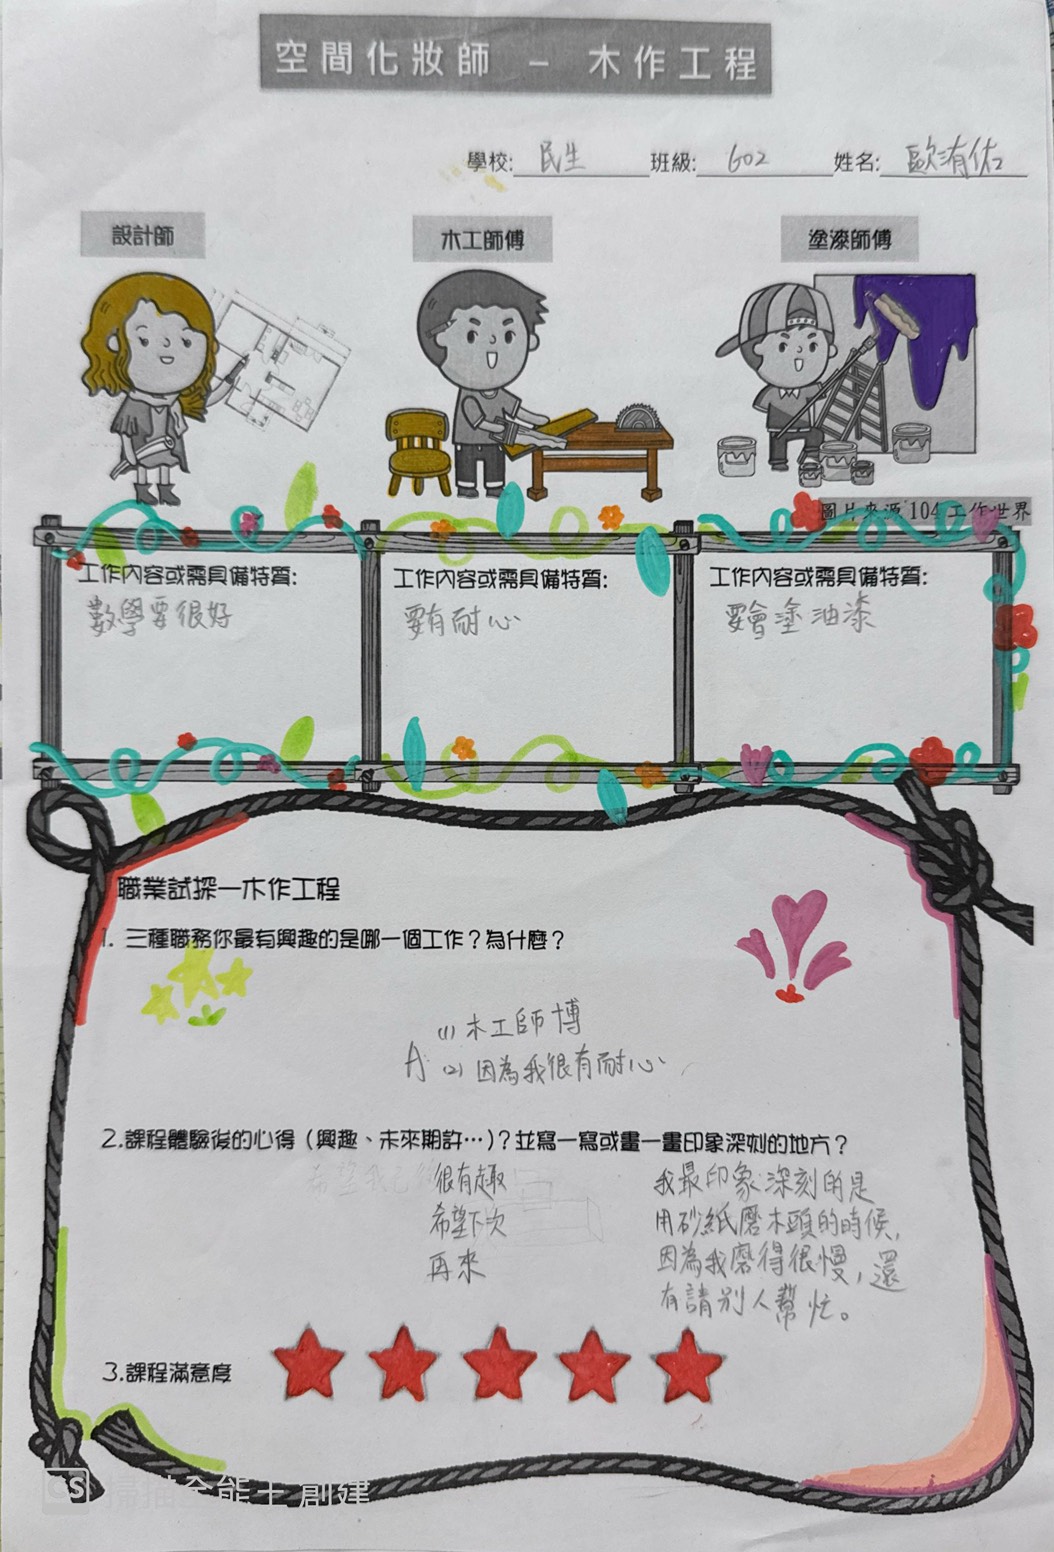 空間化妝師 – 木作工程
學校: 民生 班級: 602 姓名: 歐洧佑
設計師
木工師傅
塗漆師傅
圖片來源 104 工作世界
工作內容或需具備特質:
數學要很好
工作內容或需具備特質:
要有耐心
工作內容或需具備特質:
要會塗油漆
職業試探—木作工程
1. 三種職務你最有興趣的是哪一個工作？為什麼？
(1) 木工師博
A: (2) 因為我很有耐心
2.課程體驗後的心得（興趣、未來期許…）？並寫一寫或畫一畫印象深刻的地方？
很有趣
希望下次
再來
我最印象深刻的是
用砂紙磨木頭的時候，
因為我磨得很慢，還
有請別人幫忙。
3.課程滿意度
CS 掃描全能王 創建